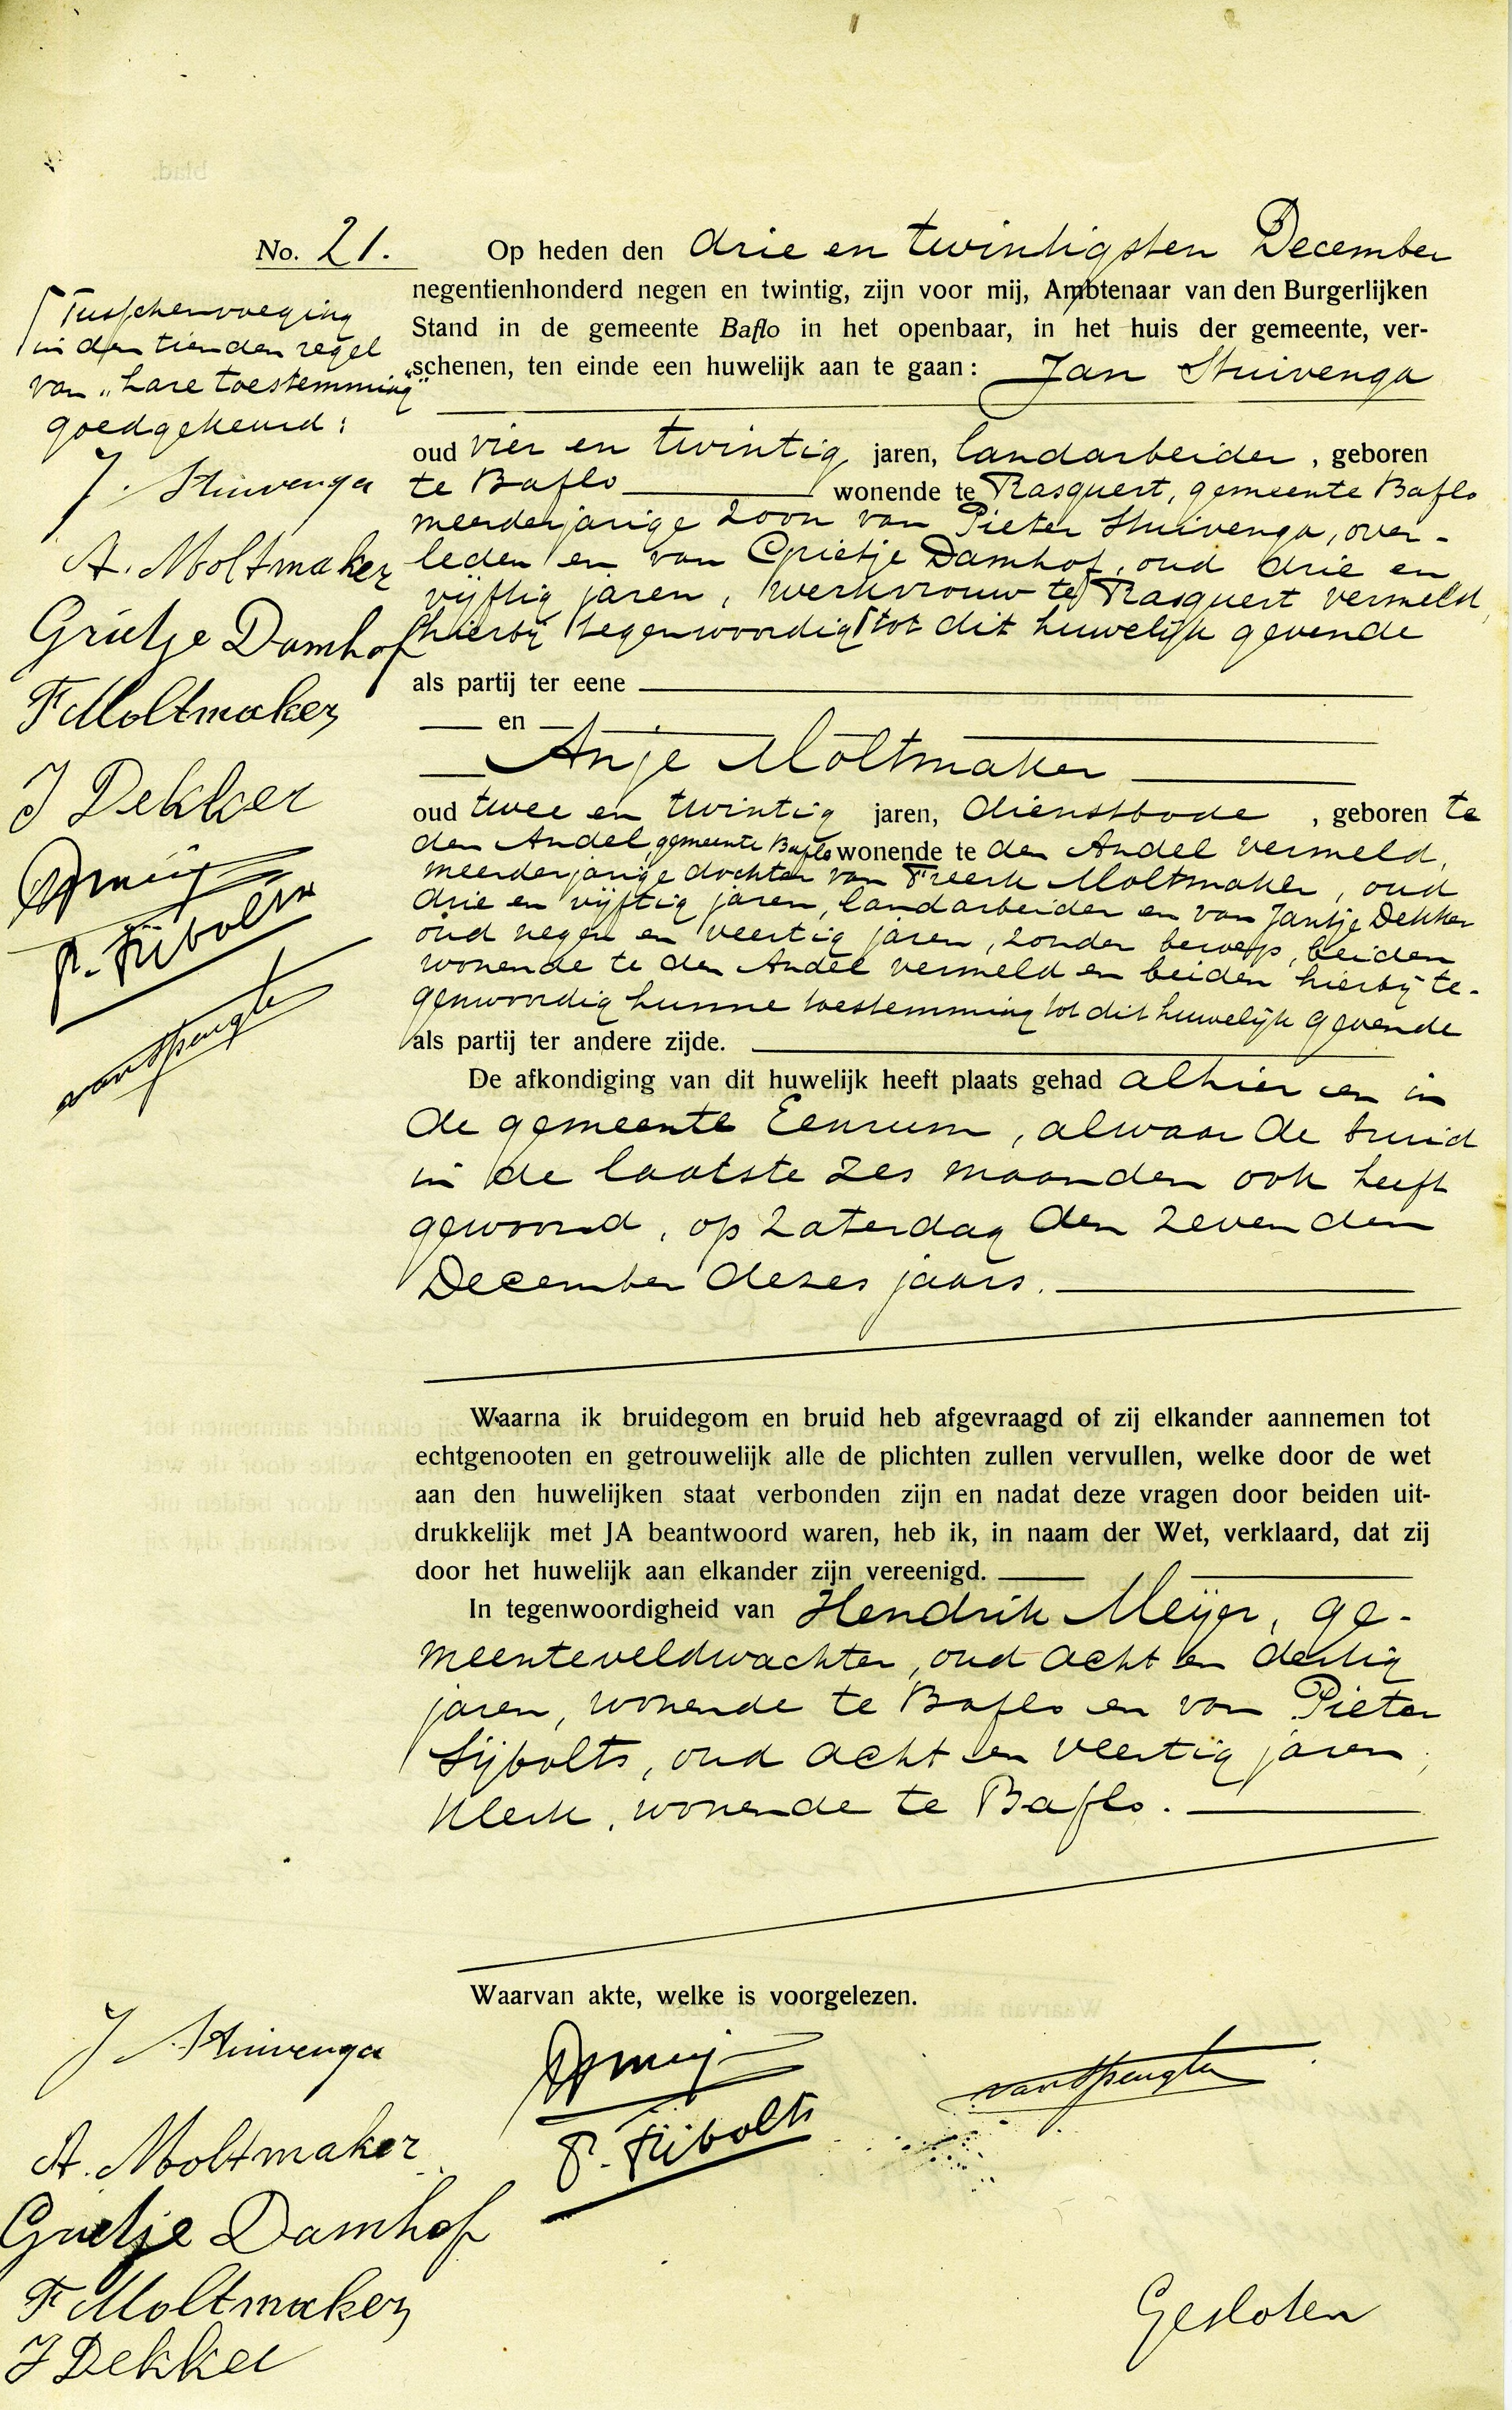 No. 21.
Op heden den drie en twintigsten December
negentienhonderd negen en twintig, zijn voor mij, Ambtenaar van den Burgerlijken
Stand in de gemeente Baflo in het openbaar, in het huis der gemeente, ver-
schenen, ten einde een huwelijk aan te gaan: Jan Stuivenga
oud vier en twintig jaren, landarbeider, geboren
te Baflo wonende te Rasquert, gemeente Baflo
meerderjarige zoon van Pieter Stuivenga, over-
leden en van Grietje Damhof, oud drie en
vijftig jaren, werkvrouw te Rasquert vermeld,
hierbij tegenwoordig ⌈ tot dit huwelijk gevende
als partij ter eene
en
Anje Moltmaker
oud twee en twintig jaren, dienstbode, geboren te
den Andel, gemeente Baflo wonende te den Andel vermeld,
meerderjarige dochter van Freerk Moltmaker, oud
drie en vijftig jaren, landarbeider en van Jantje Dekker
oud negen en veertig jaren, zonder beroep, beiden
wonende te den Andel vermeld en beiden hierbij te-
genwoordig hunne toestemming tot dit huwelijk gevende
als partij ter andere zijde.
De afkondiging van dit huwelijk heeft plaats gehad alhier en in
de gemeente Eenrum, alwaar de bruid
in de laatste zes maanden ook heeft
gewoond, op Zaterdag den zevenden
December dezes jaars.
Waarna ik bruidegom en bruid heb afgevraagd of zij elkander aannemen tot
echtgenooten en getrouwelijk alle de plichten zullen vervullen, welke door de wet
aan den huwelijken staat verbonden zijn en nadat deze vragen door beiden uit-
drukkelijk met JA beantwoord waren, heb ik, in naam der Wet, verklaard, dat zij
door het huwelijk aan elkander zijn vereenigd.
In tegenwoordigheid van Hendrik Meijer, ge-
meenteveldwachter, oud acht en dertig
jaren, wonende te Baflo en van Pieter
Sijbolts, oud acht en veertig jaren,
klerk, wonende te Baflo.
Waarvan akte, welke is voorgelezen.
⌈ Tusschenvoeging
in den tienden regel
van „hare toestemming"
goedgekeurd:
J. Stuivenga
A. Moltmaker
Grietje Damhof
F Moltmaker
J Dekker
P. Sijbolts
J Stuivenga
A. Moltmaker
Grietje Damhof
F Moltmaker
J Dekker
P. Sijbolts
Gesloten